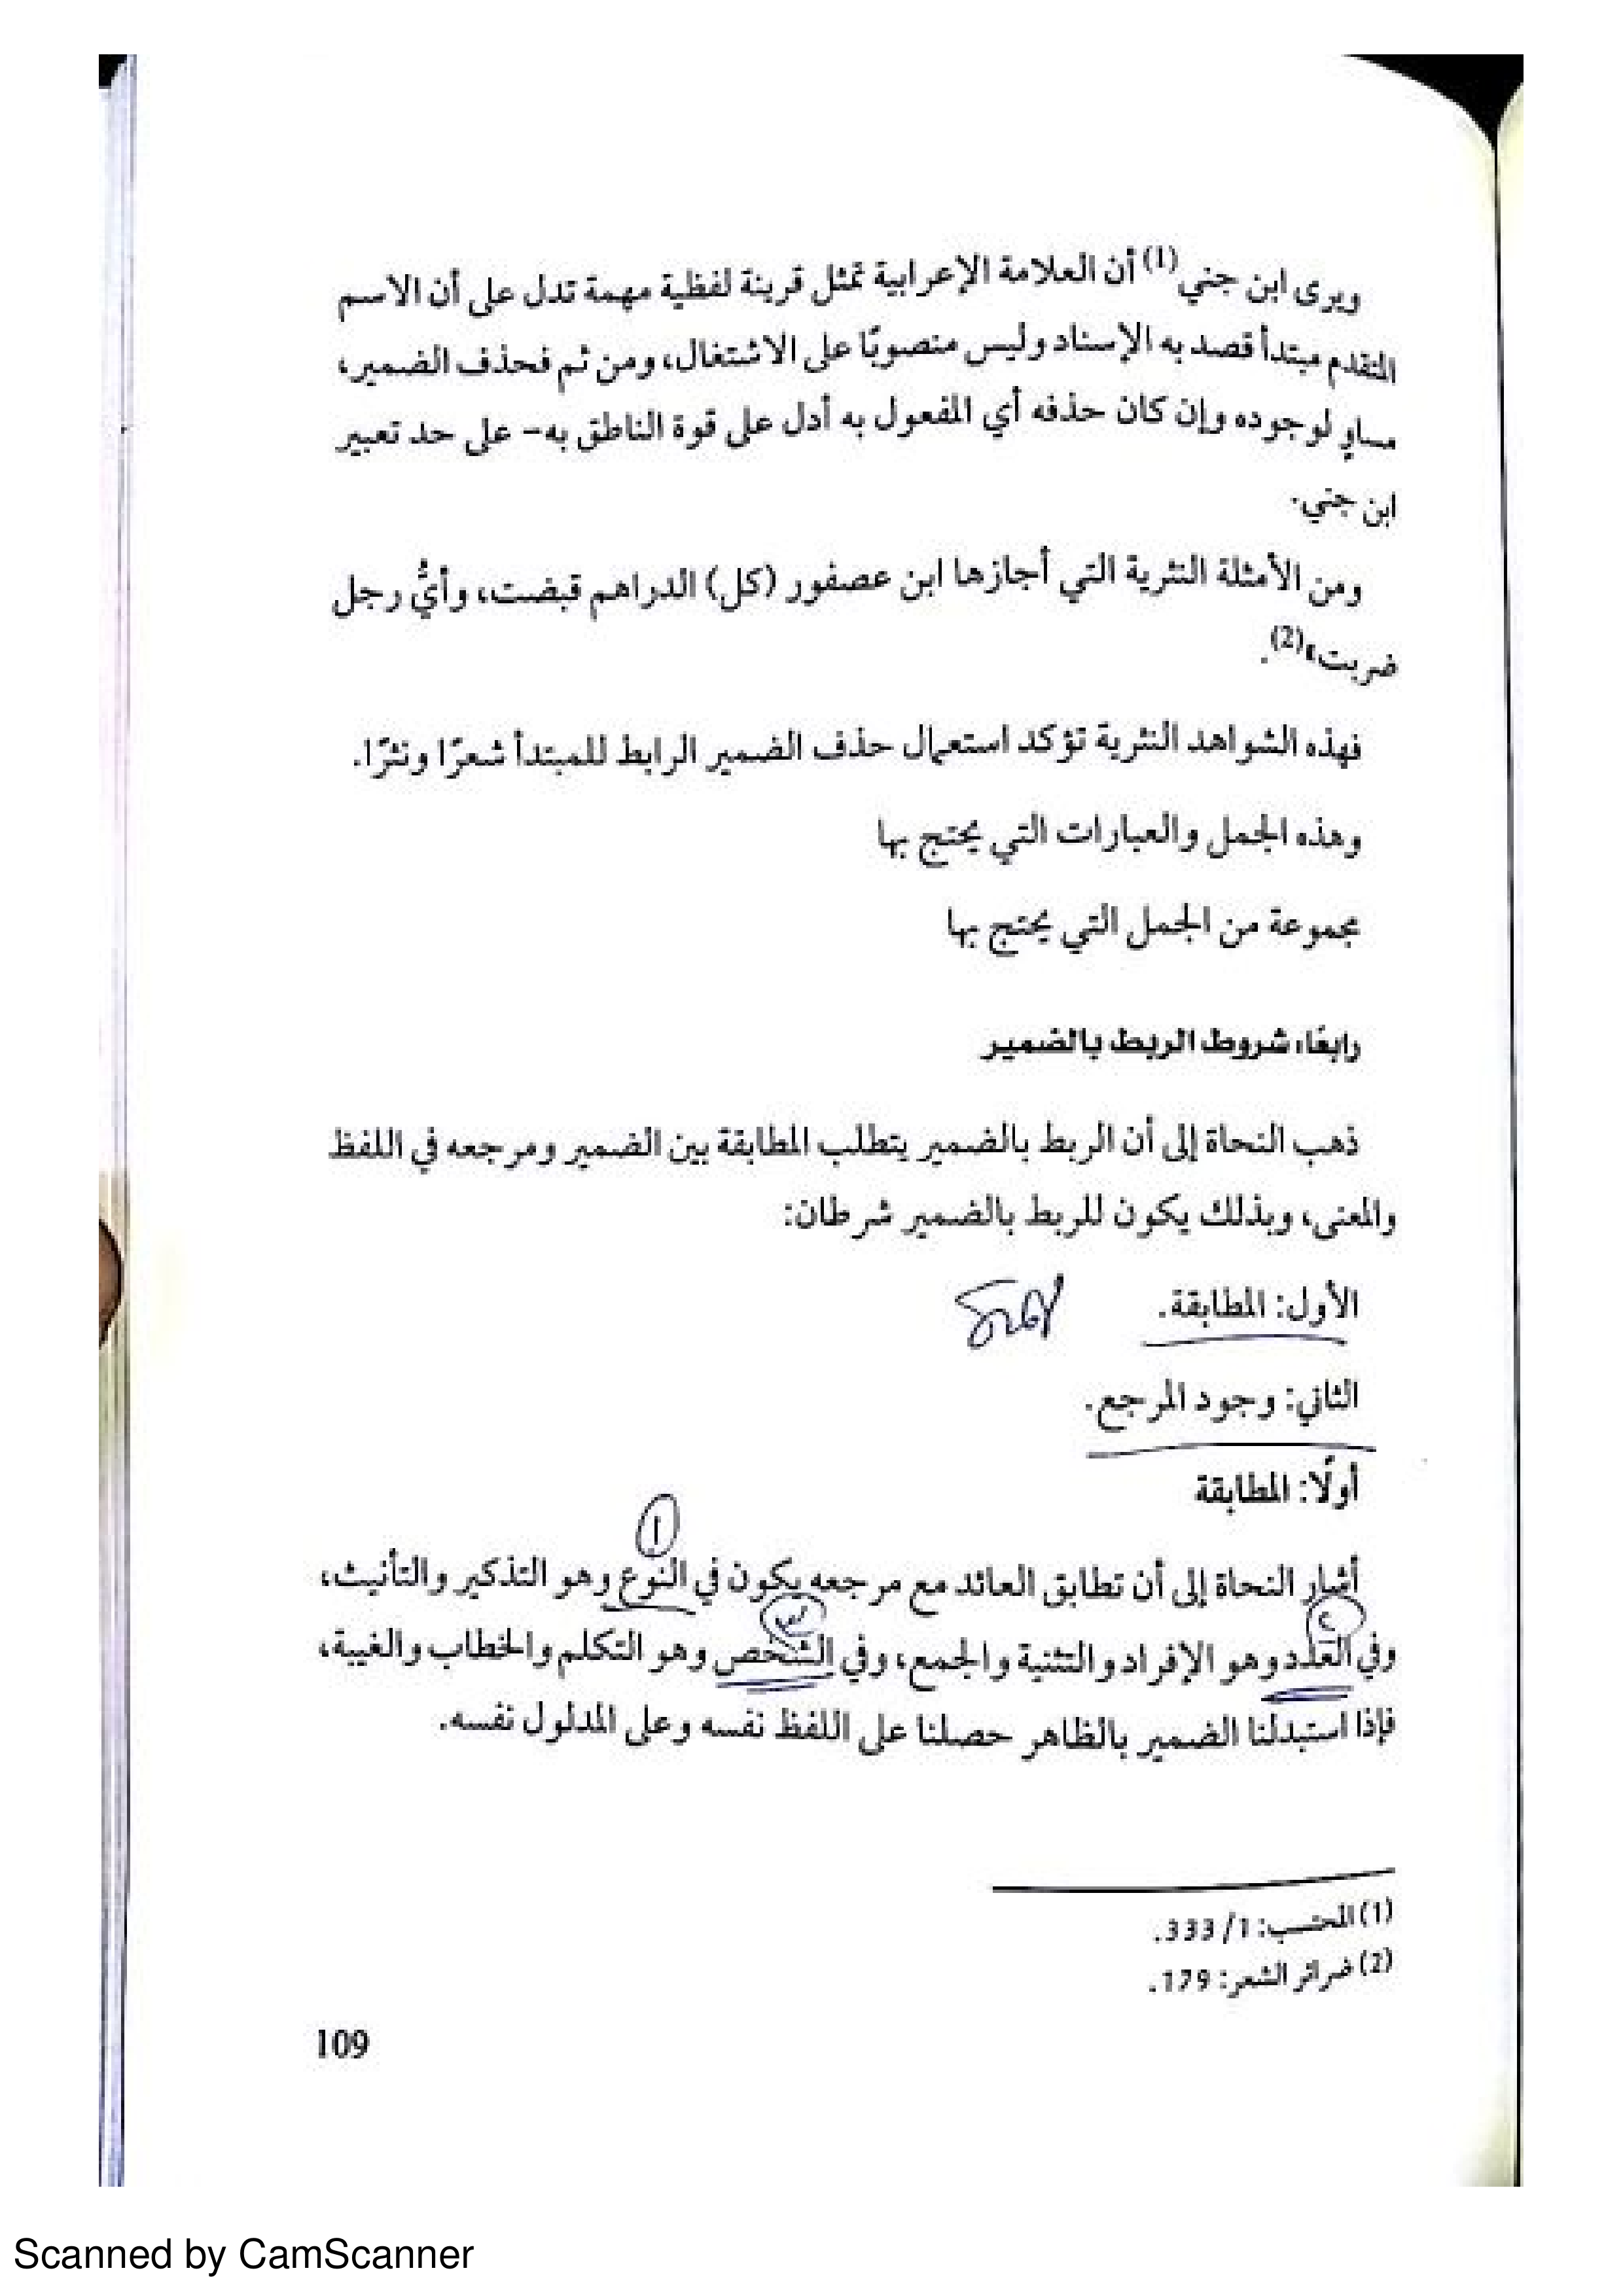 ويرى ابن جني(1) أن العلامة الإعرابية تمثل قرينة لفظية مهمة تدل على أن الاسم
المتقدم مبتدأ قصد به الإسناد وليس منصوبًا على الاشتغال، ومن ثم فحذف الضمير،
مساوٍ لوجوده وإن كان حذفه أي المفعول به أدل على قوة الناطق به- على حد تعبير
ابن جني.
ومن الأمثلة النثرية التي أجازها ابن عصفور (كل) الدراهم قبضت، وأيُّ رجل
ضربت»(2).
فهذه الشواهد النثرية تؤكد استعمال حذف الضمير الرابط للمبتدأ شعرًا ونثرًا.
وهذه الجمل والعبارات التي يحتج بها
مجموعة من الجمل التي يحتج بها
رابعًا، شروط الربط بالضمير
ذهب النحاة إلى أن الربط بالضمير يتطلب المطابقة بين الضمير ومرجعه في اللفظ
والمعنى، وبذلك يكون للربط بالضمير شرطان:
الأول: المطابقة.
الثاني: وجود المرجع.
أولًا: المطابقة
١
أشار النحاة إلى أن تطابق العائد مع مرجعه يكون في النوع وهو التذكير والتأنيث،
٢ ٣
وفي العدد وهو الإفراد والتثنية والجمع، وفي الشخص وهو التكلم والخطاب والغيبة،
فإذا استبدلنا الضمير بالظاهر حصلنا على اللفظ نفسه وعلى المدلول نفسه.
(1) المحتسب: 1/ 333.
(2) ضرائر الشعر: 179.
109
Scanned by CamScanner